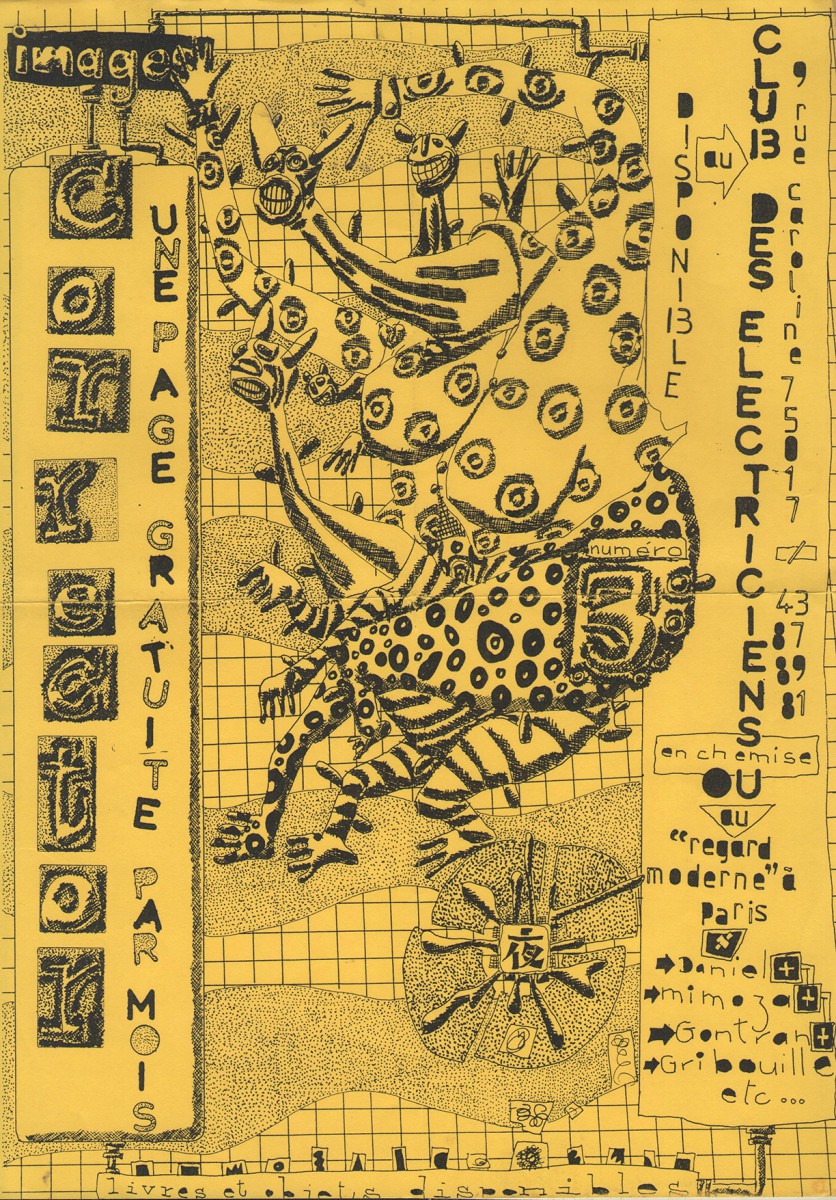 images
Correctorr
UNE PAGE GRATUITE PAR MOIS
numéro
3
夜
DISPONIBLE
au
CLUB DES ELECTRICIENS OU
9 rue caroline 75017
43 87 89 81
en chemise
au
"regard
moderne" à
paris
Daniel +
mimoza +
Gontran +
Gribouille
etc...
livres et objets disponibles